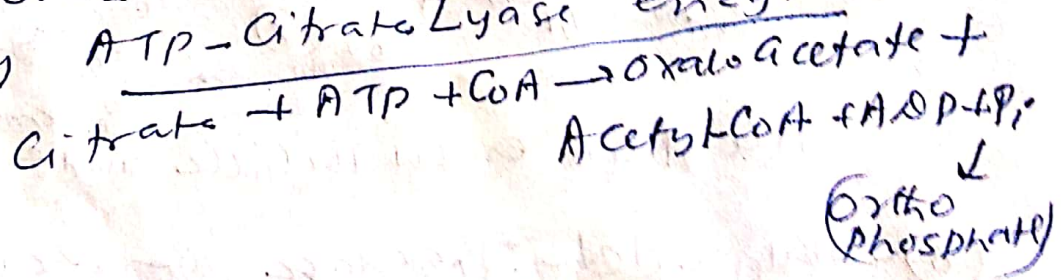 ATP-Citrate Lyase
Citrate + ATP + CoA → Oxaloacetate +
Acetyl-CoA + ADP + Pi
↓
(Ortho
phosphate)